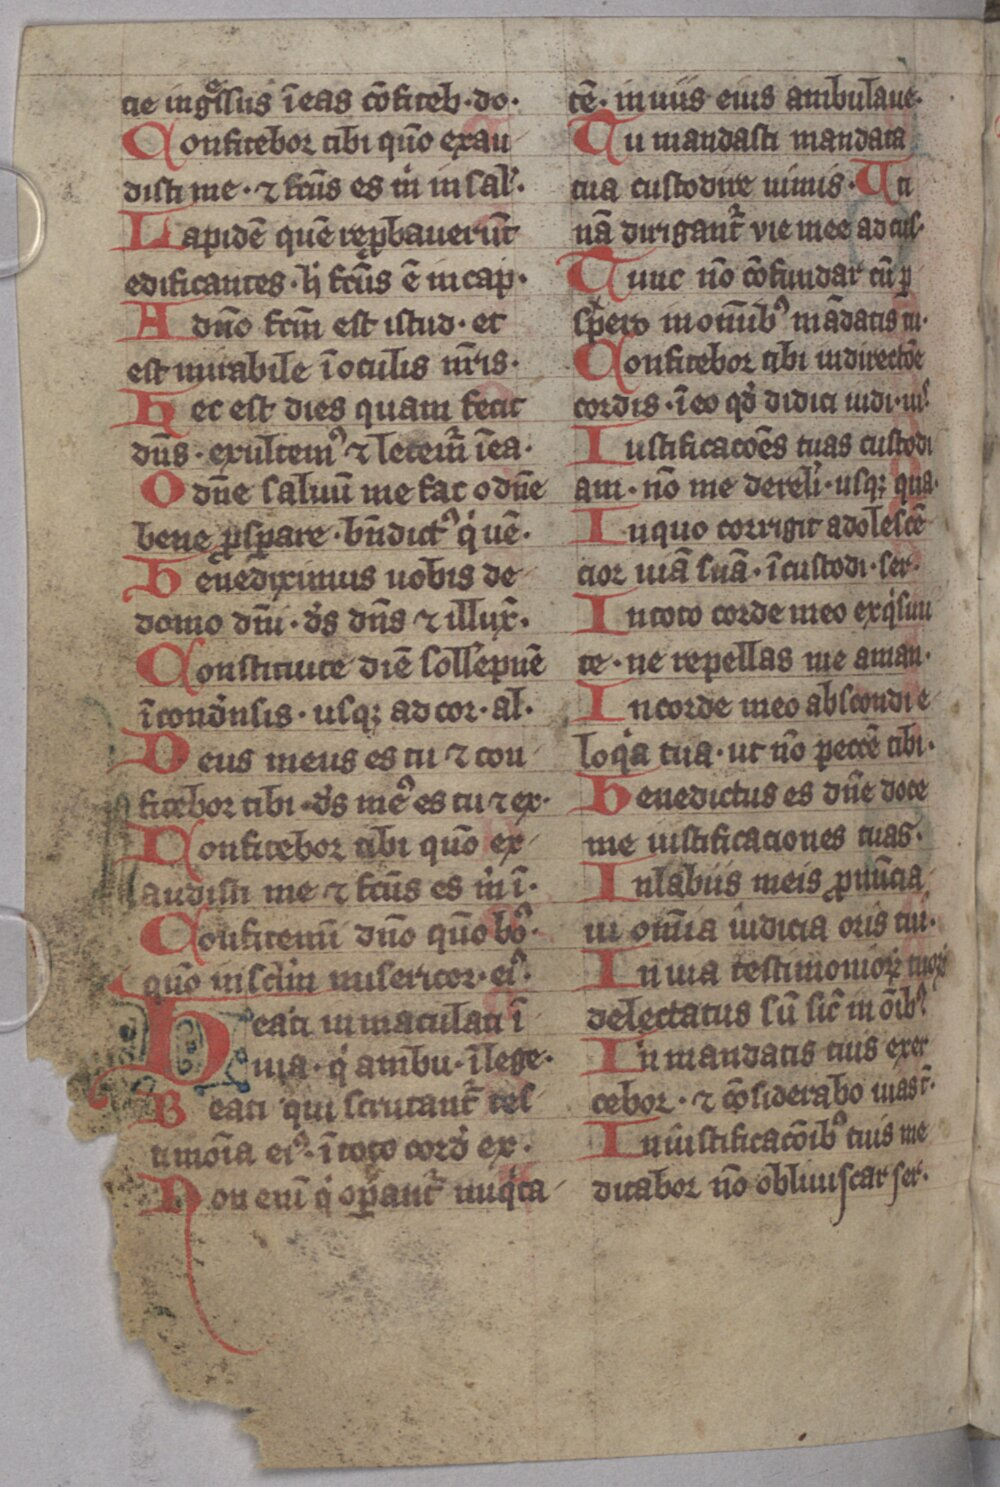 cie ingͤssus ī eas cōfiteb· do·
Confitebor tibi qūo exau
disti me· ⁊ fc̄us es m̍ in sal̍·
Lapidē quē rep̲bauerūt
edificantes· h̍ fc̄us ē in cap·
A dn̄o fc̄m est istud· et
est mirabile ī oculis nr̄is·
Hec est dies quam fecit
dn̄s· exultemꝰ ⁊ letem̄r ī ea·
O dn̄e saluū me fac o dn̄e
bene ꝓsꝑare· bn̄dictꝰ q̍ uē·
Benediximus uobis de
domo dn̄i· ds̄ dn̄s ⁊ illux̄·
Constituite diē sollēpnē
ī cond̄nsis· usqꝫ ad cor· al·
Deus meus es tu ⁊ con
fitebor tibi· ds̄ meꝰ es tu ⁊ ex·
Confitebor tibi qūo ex
audisti me ⁊ fc̄us es m̍ ī·
Confitemī dn̄o qūo boꝰ·
qūo in sc̄lm misericor· eiꝰ·
Beati inmaculati ī
uia· q̍ ambu· ī lege·
Beati qui scrutant̄ tes
timoīa eiꝰ· ī toto cord̄ ex·
Non eni̅ q̍ oꝑant̄ iniq̍ta
tē· in uiis eius ambulaue·
Tu mandasti mandata
tua custodire nimis· Uti
nā dirigant̄ vie mee ad cus·
Tunc nō cōfundar cū ꝑ
sꝑexero in omībꝰ mādatis tu·
Confitebor tibi in directōe
cordis· ī eo qd̍ didici iudi· iusꝰ
Iustificacōes tuas custodi
am· nō me dereli̍· usqꝫ qua·
In quo corrigit adolescē
cior uiā suā· ī custodi· ser·
In toto corde meo exq̍siui
te· ne repellas me a man·
In corde meo abscondi e
loq̍a tua· ut nō peccē tibi·
Benedictus es dn̄e doce
me iustificaciones tuas·
In labiis meis ꝓnūcia
ui om̄ia iudicia oris tui·
In uia testimonioꝝ tuoꝝ
delectatus sū sic̄ in ōibꝰ
In mandatis tuis exer
cebor· ⁊ cōsiderabo uias t̄·
In iustificacōibꝰ tuis me
ditabor nō obliuiscar ser̍·